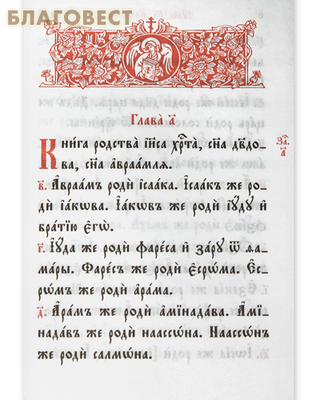 БЛАГОВЕСТ
Глава а҃
Книга родства̀ і҆и҃са хр҃та̀, сн҃а дв҃до-
ва, сн҃а а҆враа́мля.
в҃. А҆враа́мъ родѝ і҆саа́ка. І҆саа́къ же ро-
дѝ і҆а́кѡва. І҆а́кѡвъ же родѝ і҆у́дꙋ и҆
бра́тїю є҆гѡ̀.
г҃. І҆у́да же родѝ фаре́са и҆ за́рꙋ ѿ ѳа-
ма́ры. Фаре́съ же родѝ є҆срѡ́ма. Є҆с-
рѡ́мъ же родѝ а҆ра́ма.
д҃. А҆ра́мъ же родѝ а҆мїнада́ва. А҆мї-
нада́въ же родѝ наассѡ́на. Наассѡ́нъ
же родѝ салмѡ́на.